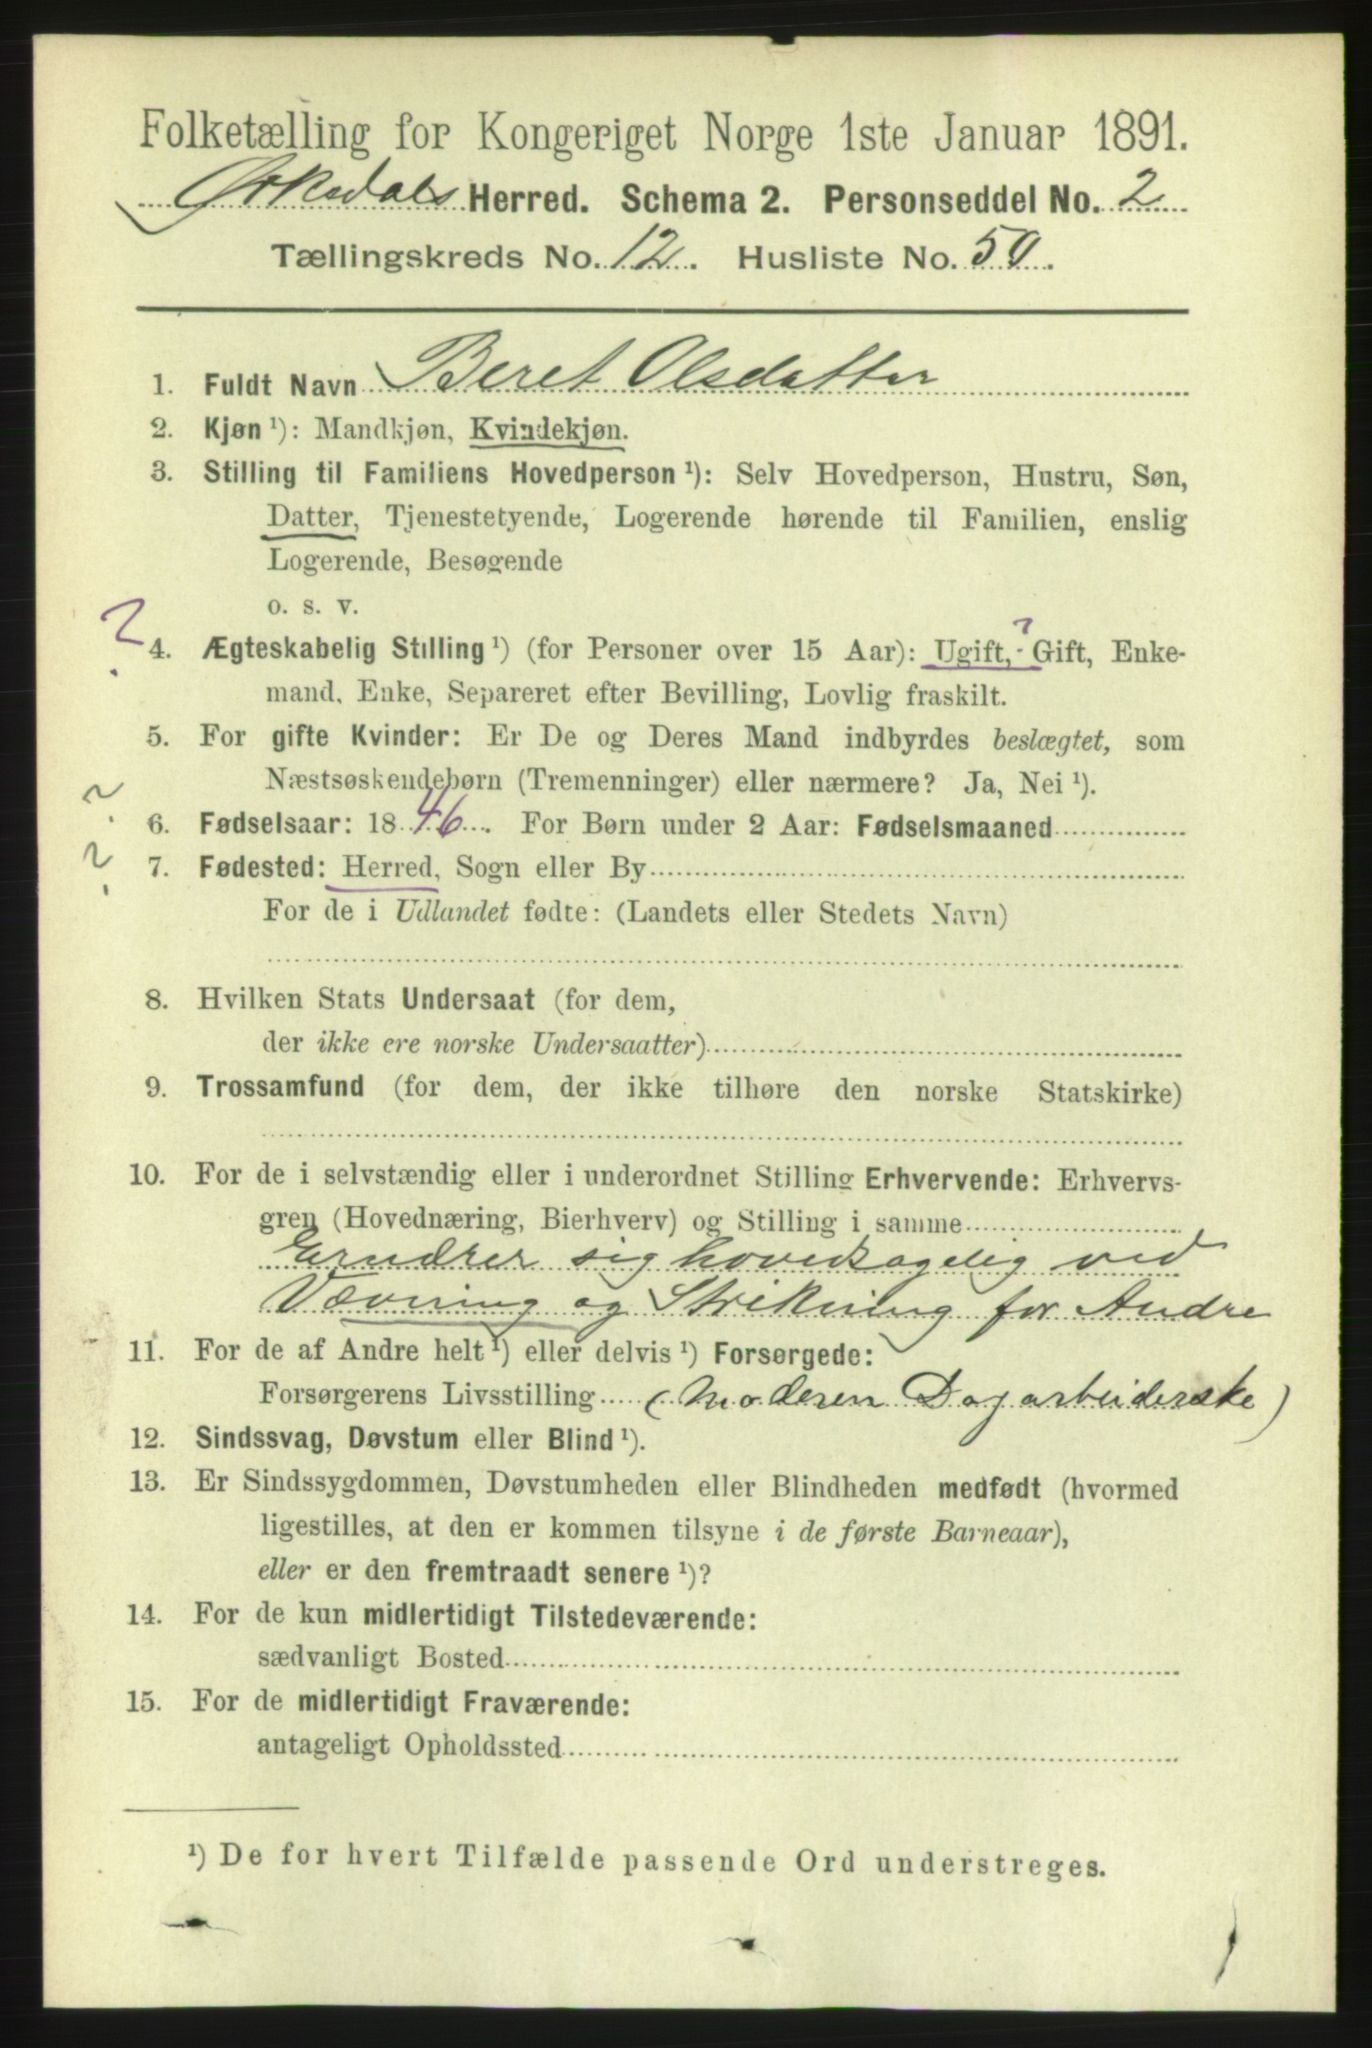 Folketælling for Kongeriget Norge 1ste Januar 1891.
Ørkedals Herred. Schema 2. Personseddel No. 2
Tællingskreds No. 12. Husliste No. 50.
1. Fuldt Navn Beret Olsdatter
2. Kjøn ¹): Mandkjøn, Kvindekjøn.
3. Stilling til Familiens Hovedperson ¹): Selv Hovedperson, Hustru, Søn,
Datter, Tjenestetyende, Logerende hørende til Familien, enslig
Logerende, Besøgende
o. s. v.
?
?
4. Ægteskabelig Stilling ¹) (for Personer over 15 Aar): Ugift, Gift, Enke-
mand, Enke, Separeret efter Bevilling, Lovlig fraskilt.
5. For gifte Kvinder: Er De og Deres Mand indbyrdes beslægtet, som
Næstsøskendebørn (Tremenninger) eller nærmere? Ja, Nei ¹).
?
6. Fødselsaar: 1846. For Børn under 2 Aar: Fødselsmaaned
?
7. Fødested: Herred, Sogn eller By
For de i Udlandet fødte: (Landets eller Stedets Navn)
8. Hvilken Stats Undersaat (for dem,
der ikke ere norske Undersaatter)
9. Trossamfund (for dem, der ikke tilhøre den norske Statskirke)
10. For de i selvstændig eller i underordnet Stilling Erhvervende: Erhvervs-
gren (Hovednæring, Bierhverv) og Stilling i samme
Ernærer sig hovedsagelig ved
Vævning og Strikning for Andre
11. For de af Andre helt ¹) eller delvis ¹) Forsørgede:
Forsørgerens Livsstilling (Moderen Dagarbeiderske)
12. Sindssvag, Døvstum eller Blind ¹).
13. Er Sindssygdommen, Døvstumheden eller Blindheden medfødt (hvormed
ligestilles, at den er kommen tilsyne i de første Barneaar),
eller er den fremtraadt senere ¹)?
14. For de kun midlertidigt Tilstedeværende:
sædvanligt Bosted
15. For de midlertidigt Fraværende:
antageligt Opholdssted
¹) De for hvert Tilfælde passende Ord understreges.